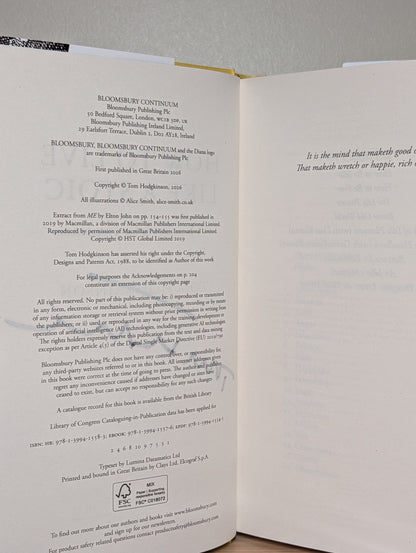 BLOOMSBURY CONTINUUM
Bloomsbury Publishing Plc
50 Bedford Square, London, WC1B 3DP, UK
Bloomsbury Publishing Ireland Limited,
29 Earlsfort Terrace, Dublin 2, D02 AY28, Ireland
BLOOMSBURY, BLOOMSBURY CONTINUUM and the Diana logo
are trademarks of Bloomsbury Publishing Plc
First published in Great Britain 2026
Copyright © Tom Hodgkinson, 2026
All illustrations © Alice Smith, alice-smith.co.uk
Extract from ME by Elton John on pp. 154–155 was first published in
2019 by Macmillan, a division of Macmillan Publishers International Limited.
Reproduced by permission of Macmillan Publishers International Limited.
Copyright © HST Global Limited 2019
Tom Hodgkinson has asserted his right under the Copyright,
Designs and Patents Act, 1988, to be identified as Author of this work
For legal purposes the Acknowledgements on p. 204
constitute an extension of this copyright page
All rights reserved. No part of this publication may be: i) reproduced or transmitted
in any form, electronic or mechanical, including photocopying, recording or by means
of any information storage or retrieval system without prior permission in writing from
the publishers; or ii) used or reproduced in any way for the training, development or
operation of artificial intelligence (AI) technologies, including generative AI technologies.
The rights holders expressly reserve this publication from the text and data mining
exception as per Article 4(3) of the Digital Single Market Directive (EU) 2019/790
Bloomsbury Publishing Plc does not have any control over, or responsibility for,
any third-party websites referred to or in this book. All internet addresses given
in this book were correct at the time of going to press. The author and publisher
regret any inconvenience caused if addresses have changed or sites have
ceased to exist, but can accept no responsibility for any such changes
A catalogue record for this book is available from the British Library
Library of Congress Cataloguing-in-Publication data has been applied for
ISBN: HB: 978-1-3994-1558-3; EBOOK: 978-1-3994-1557-6;
2 4 6 8 10 9 7 5 3 1
Typeset by Lumina Datamatics Ltd
Printed and bound in Great Britain by Clays Ltd, Elcograf S.p.A.
FSC
www.fsc.org
MIX
Paper | Supporting
responsible forestry
FSC® C018072
To find out more about our authors and books visit www.bloomsbury.com
and sign up for our newsletters
For product safety related questions contact productsafety@bloomsbury.com
It is the mind that maketh good o
That maketh wretch or happie, rich o